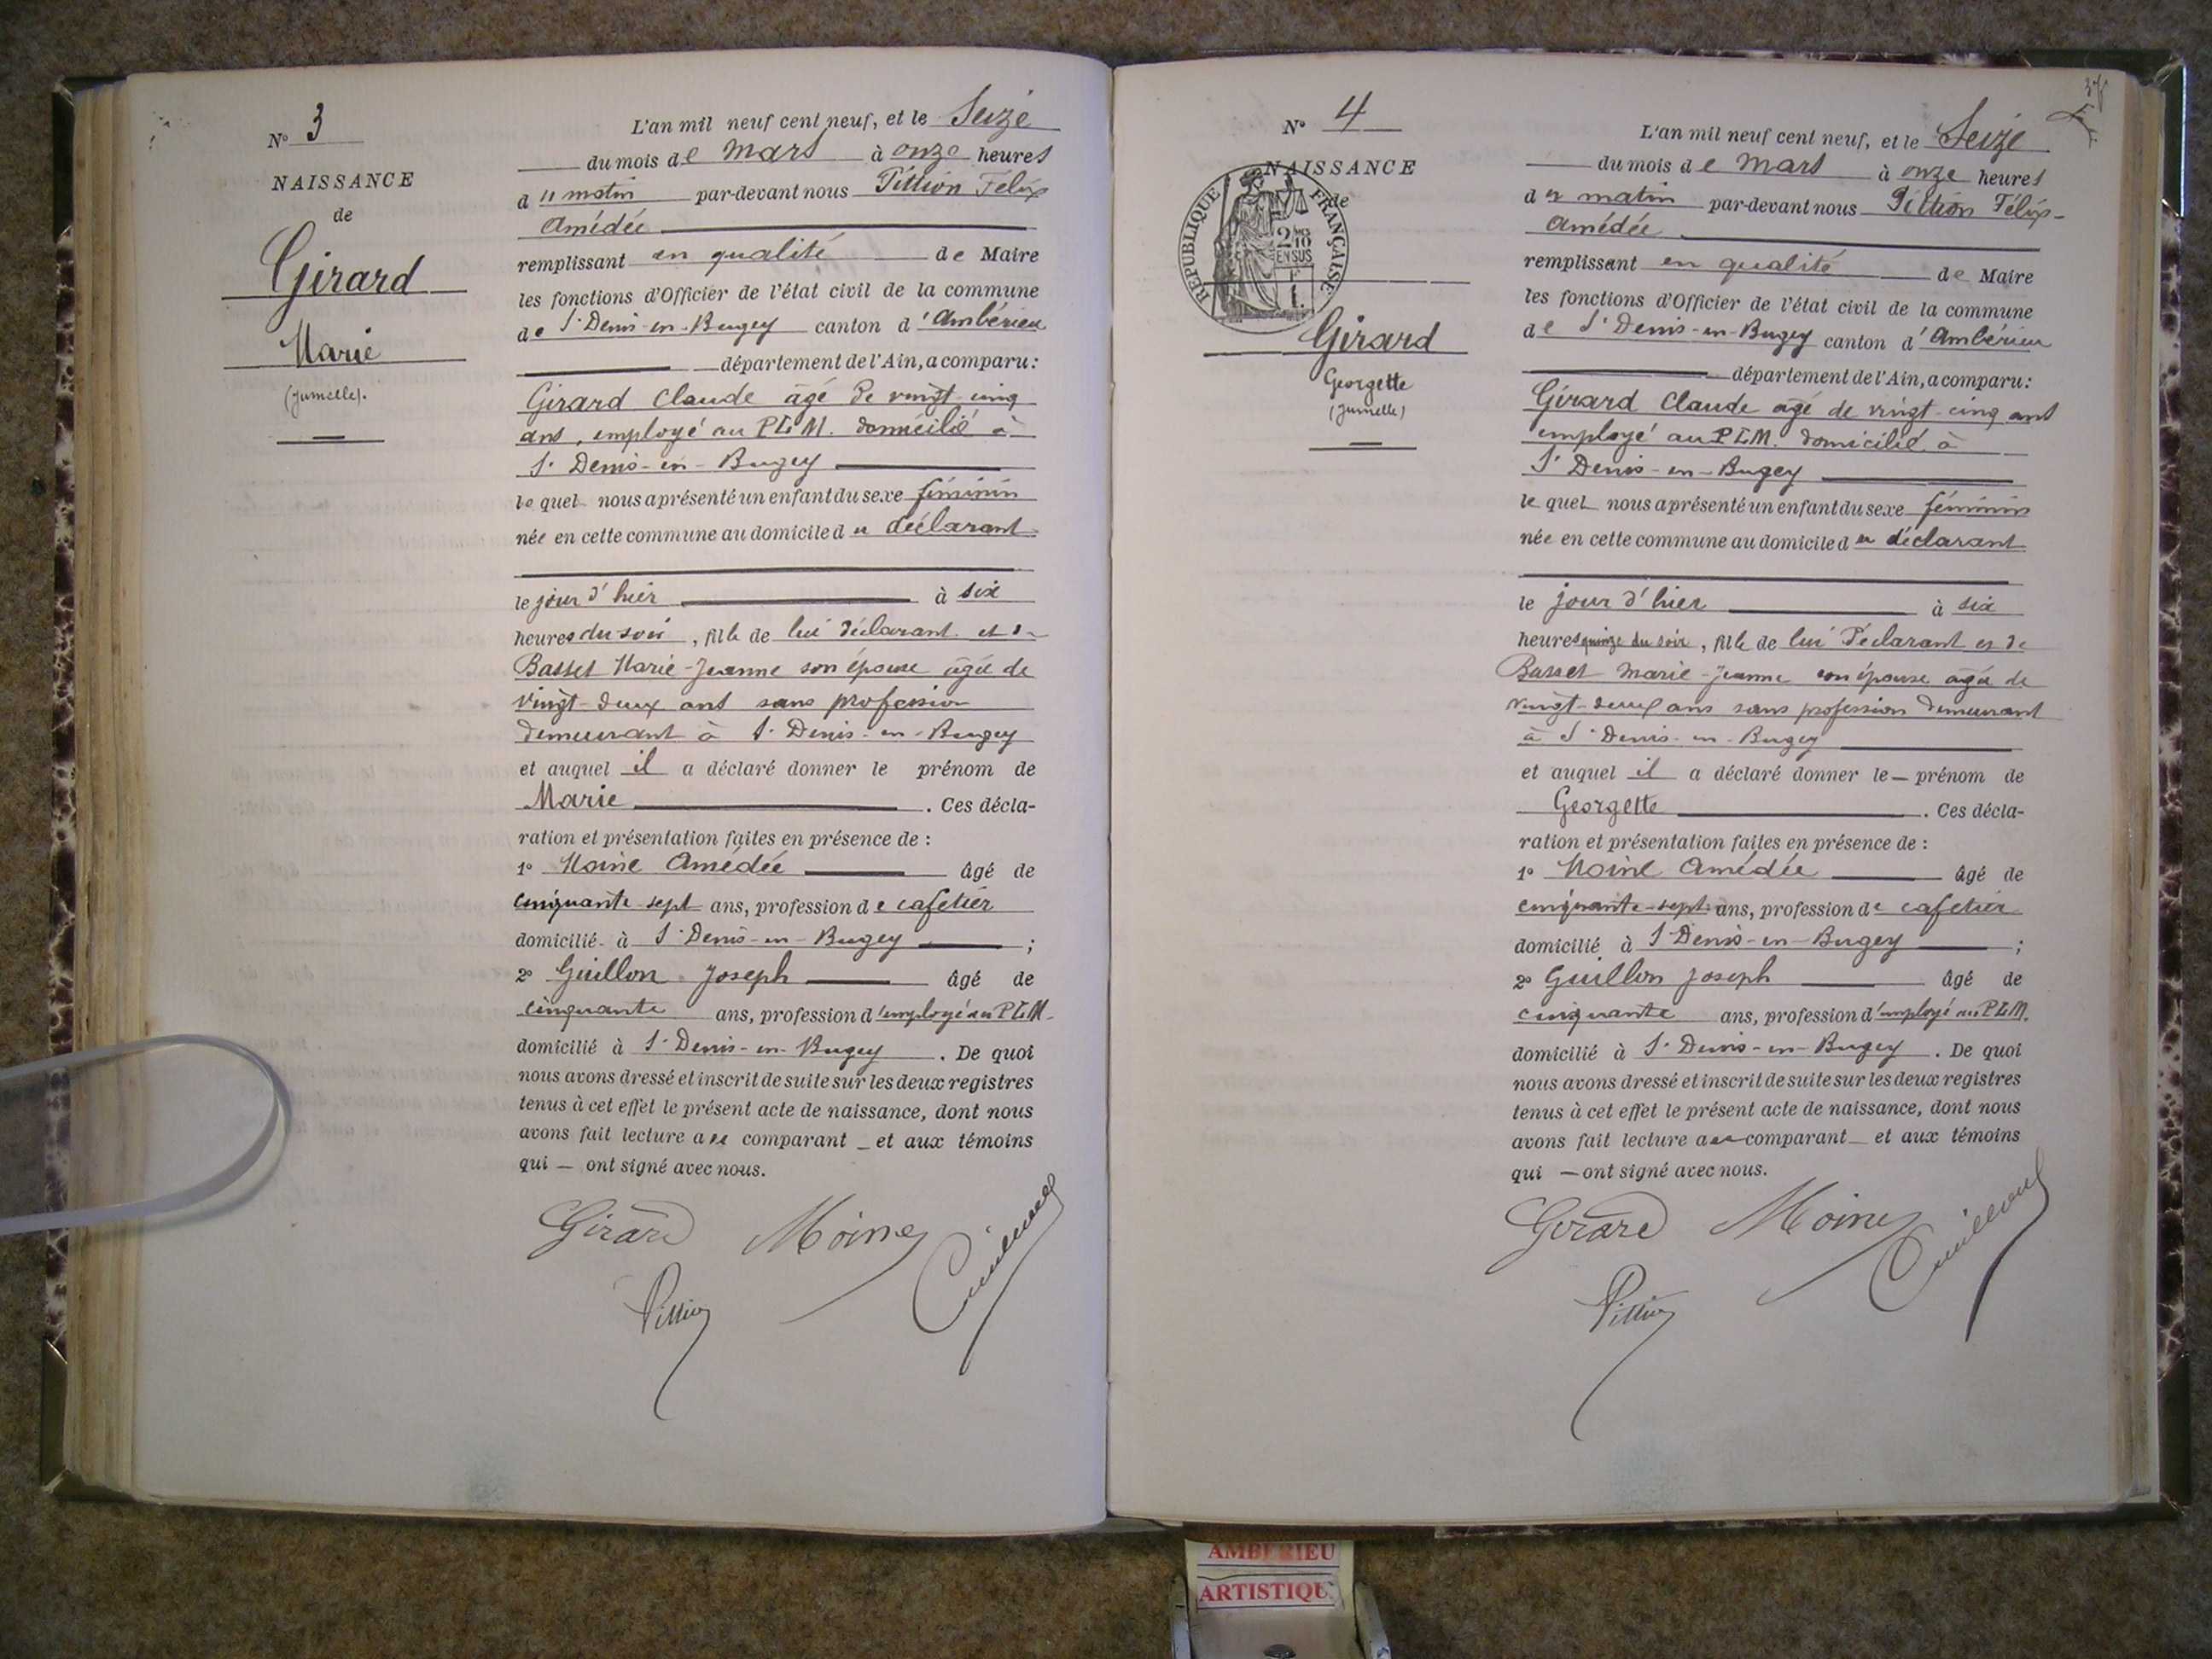 N° 3
NAISSANCE
de
Girard
Marie
(jumelle).
L'an mil neuf cent neuf, et le Seize
du mois de Mars à onze heures
du matin par-devant nous Pittion Félix
Amédée
remplissant en qualité de Maire
les fonctions d'Officier de l'état civil de la commune
de St Denis-en-Bugey canton d'Ambérieu
département de l'Ain, a comparu:
Girard Claude âgé de vingt-cinq
ans, employé au P.L.M. domicilié à
St Denis-en-Bugey
lequel nous a présenté un enfant du sexe féminin
née en cette commune au domicile du déclarant
le jour d'hier à six
heures du soir, fille de lui déclarant et de
Basset Marie-Jeanne son épouse âgée de
vingt-deux ans sans profession
demeurant à St Denis-en-Bugey
et auquel il a déclaré donner le prénom de
Marie. Ces décla-
ration et présentation faites en présence de :
1° Moine Amédée âgé de
cinquante-sept ans, profession de cafetier
domicilié à St Denis-en-Bugey ;
2° Guillon Joseph âgé de
cinquante ans, profession d'employé au P.L.M.
domicilié à St Denis-en-Bugey. De quoi
nous avons dressé et inscrit de suite sur les deux registres
tenus à cet effet le présent acte de naissance, dont nous
avons fait lecture au comparant et aux témoins
qui — ont signé avec nous.
Girard Moine Guillon
Pittion
N° 4
NAISSANCE
de
RÉPUBLIQUE FRANÇAISE
2/10
EN SUS
Girard
Georgette
(jumelle)
L'an mil neuf cent neuf, et le Seize
du mois de Mars à onze heures
du matin par-devant nous Pittion Félix-
Amédée
remplissant en qualité de Maire
les fonctions d'Officier de l'état civil de la commune
de St Denis-en-Bugey canton d'Ambérieu
département de l'Ain, a comparu:
Girard Claude âgé de vingt-cinq ans
employé au P.L.M. domicilié à
St Denis-en-Bugey
lequel nous a présenté un enfant du sexe féminin
née en cette commune au domicile du déclarant
le jour d'hier à six
heures quinze du soir, fille de lui déclarant et de
Basset Marie-Jeanne son épouse âgée de
vingt-deux ans sans profession demeurant
à St Denis-en-Bugey
et auquel il a déclaré donner le prénom de
Georgette. Ces décla-
ration et présentation faites en présence de :
1° Moine Amédée âgé de
cinquante-sept ans, profession de cafetier
domicilié à St Denis-en-Bugey ;
2° Guillon Joseph âgé de
cinquante ans, profession d'employé au P.L.M.
domicilié à St Denis-en-Bugey. De quoi
nous avons dressé et inscrit de suite sur les deux registres
tenus à cet effet le présent acte de naissance, dont nous
avons fait lecture au comparant et aux témoins
qui — ont signé avec nous.
Girard Moine Guillon
Pittion
AMBERIEU
ARTISTIQU